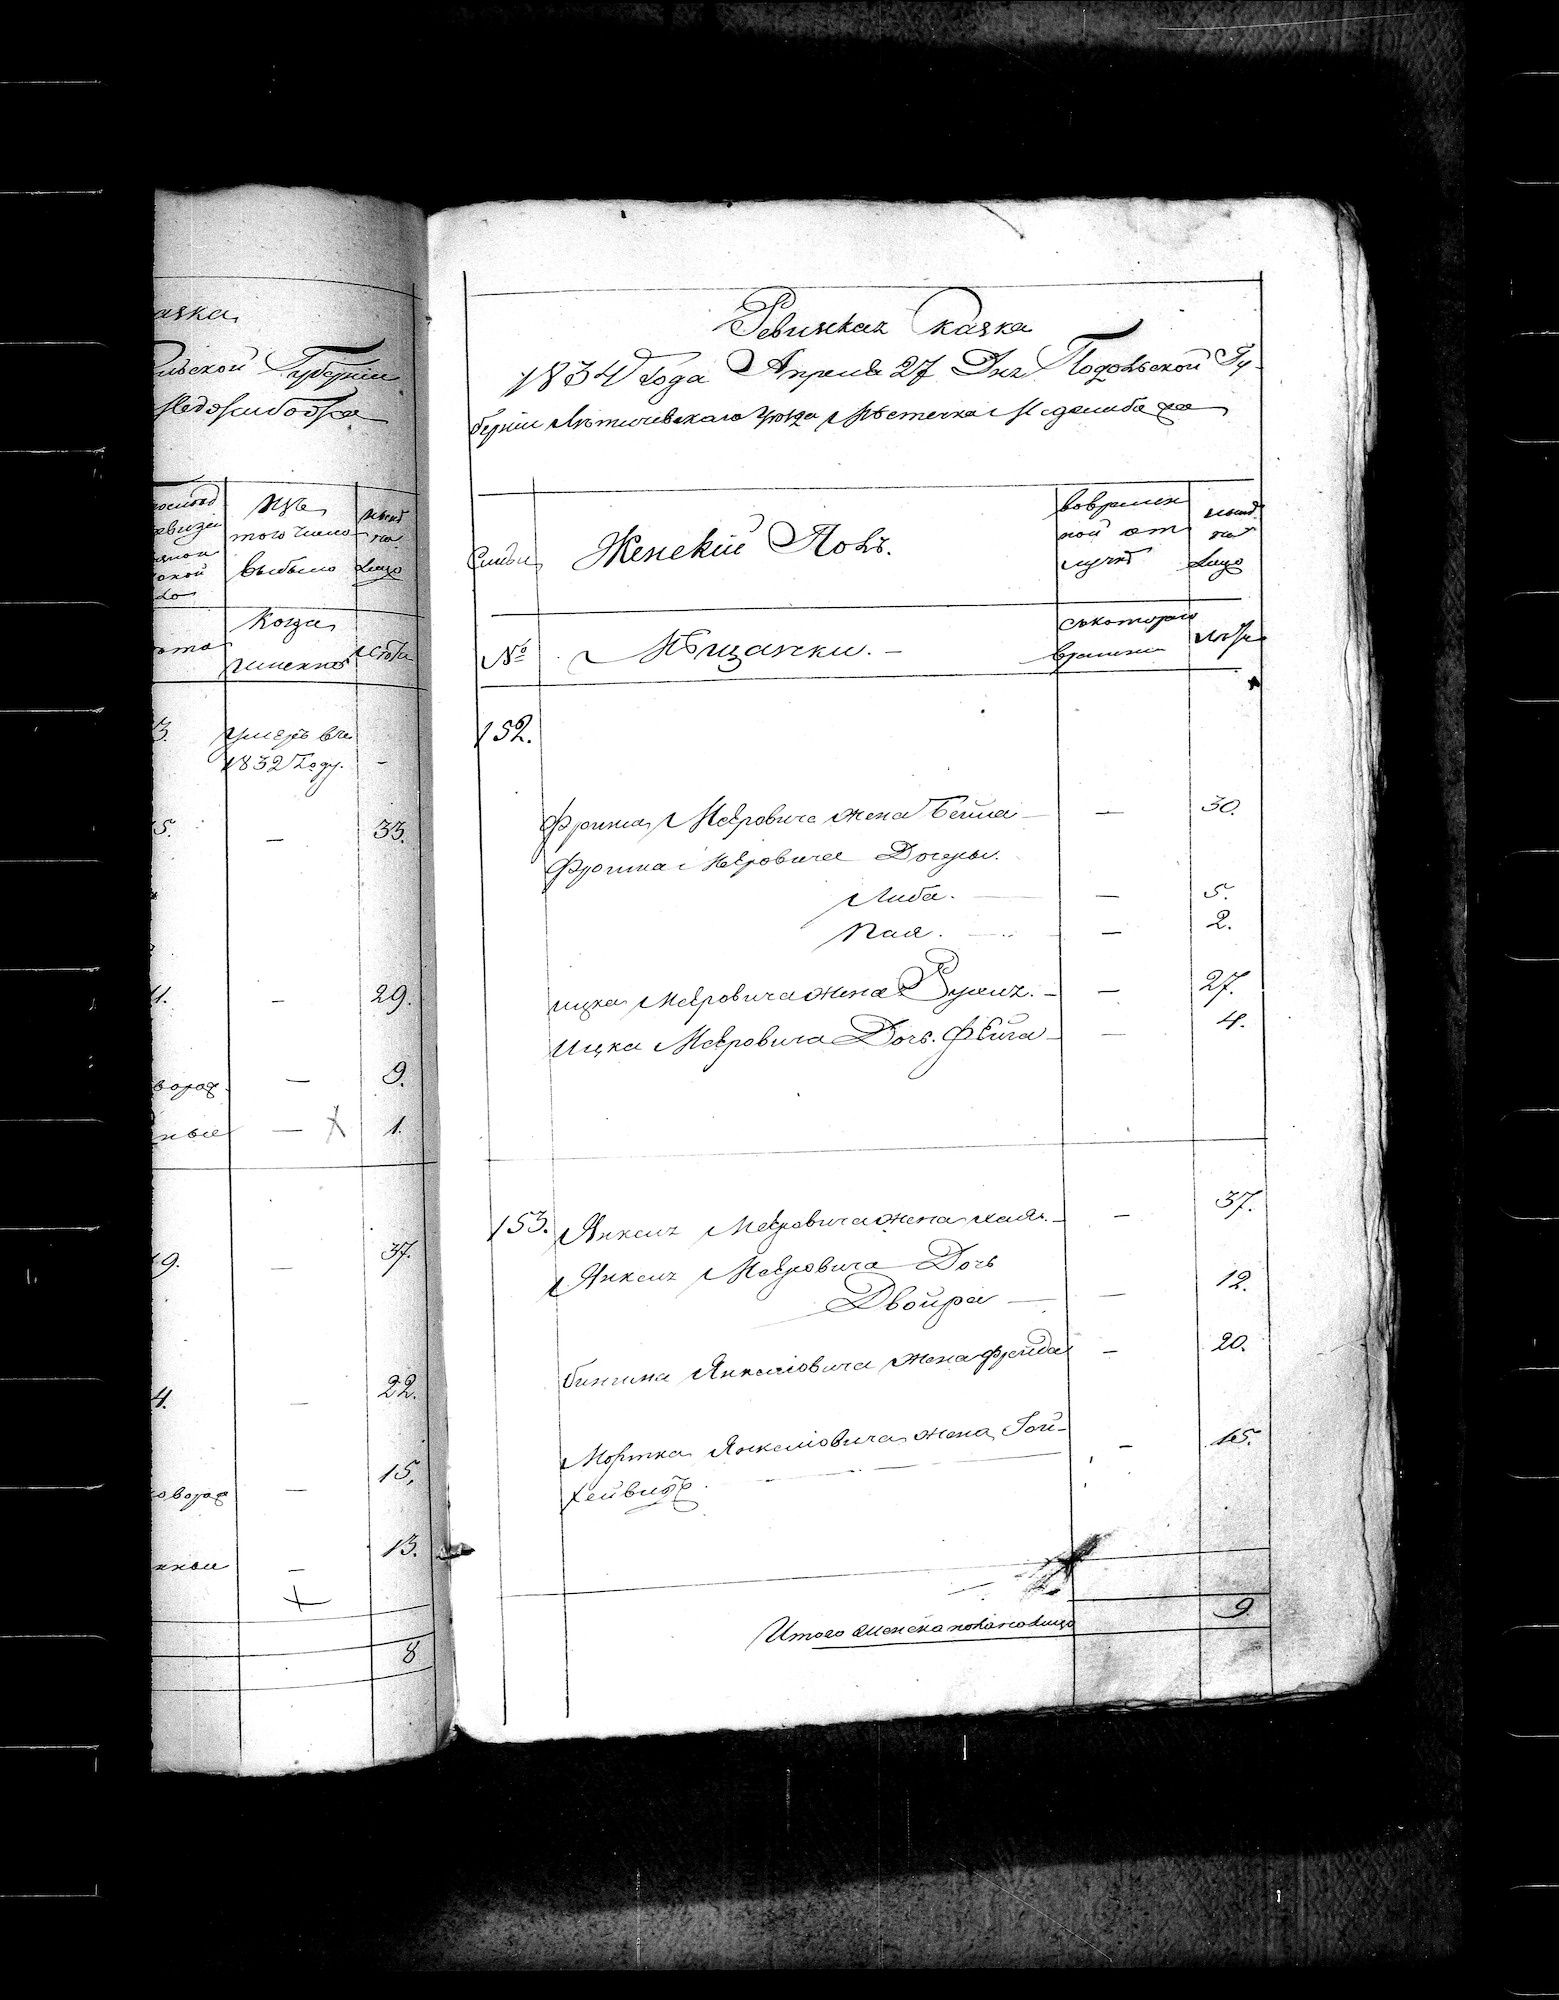 азка
льской Губерніи
Меджибожа
Изъ
того числа
выбыло
лицо
Когда
имянно
лѣта
3. умеръ въ
1832 Году. -
5. - 33.
11. - 29.
- 9.
- 1.
9. - 37.
4. - 22.
- 15.
- 13.
8
Ревизская Сказка
1834 Года Апреля 27 Дня Подольской Гу-
берніи Летичевскаго Уѣзда Мѣстечка Меджибожа
Семьи
Женскій Полъ.
вовремен
ной от
лучкѣ
лицо
№
Мѣщанки. -
съкотораго
времени
лѣта
152.
Фроима Меѣровича жена Бейла - - 30.
Фроима Меѣровича Дочеры.
Либа. - 5.
Хая. - 2.
Ицка Меѣровича жена Рухля. - - 27.
Ицка Меѣровича Дочь. Фейга - - 4.
153. Янкеля Меѣровича жена хая. - - 37.
Янкеля Меѣровича Дочь
Двойра - - 12.
Янкелiовича жена фрейда - 20.
Мортка Янкелiовича жена Гой- - 15.
Итого женска пола налицо 9.